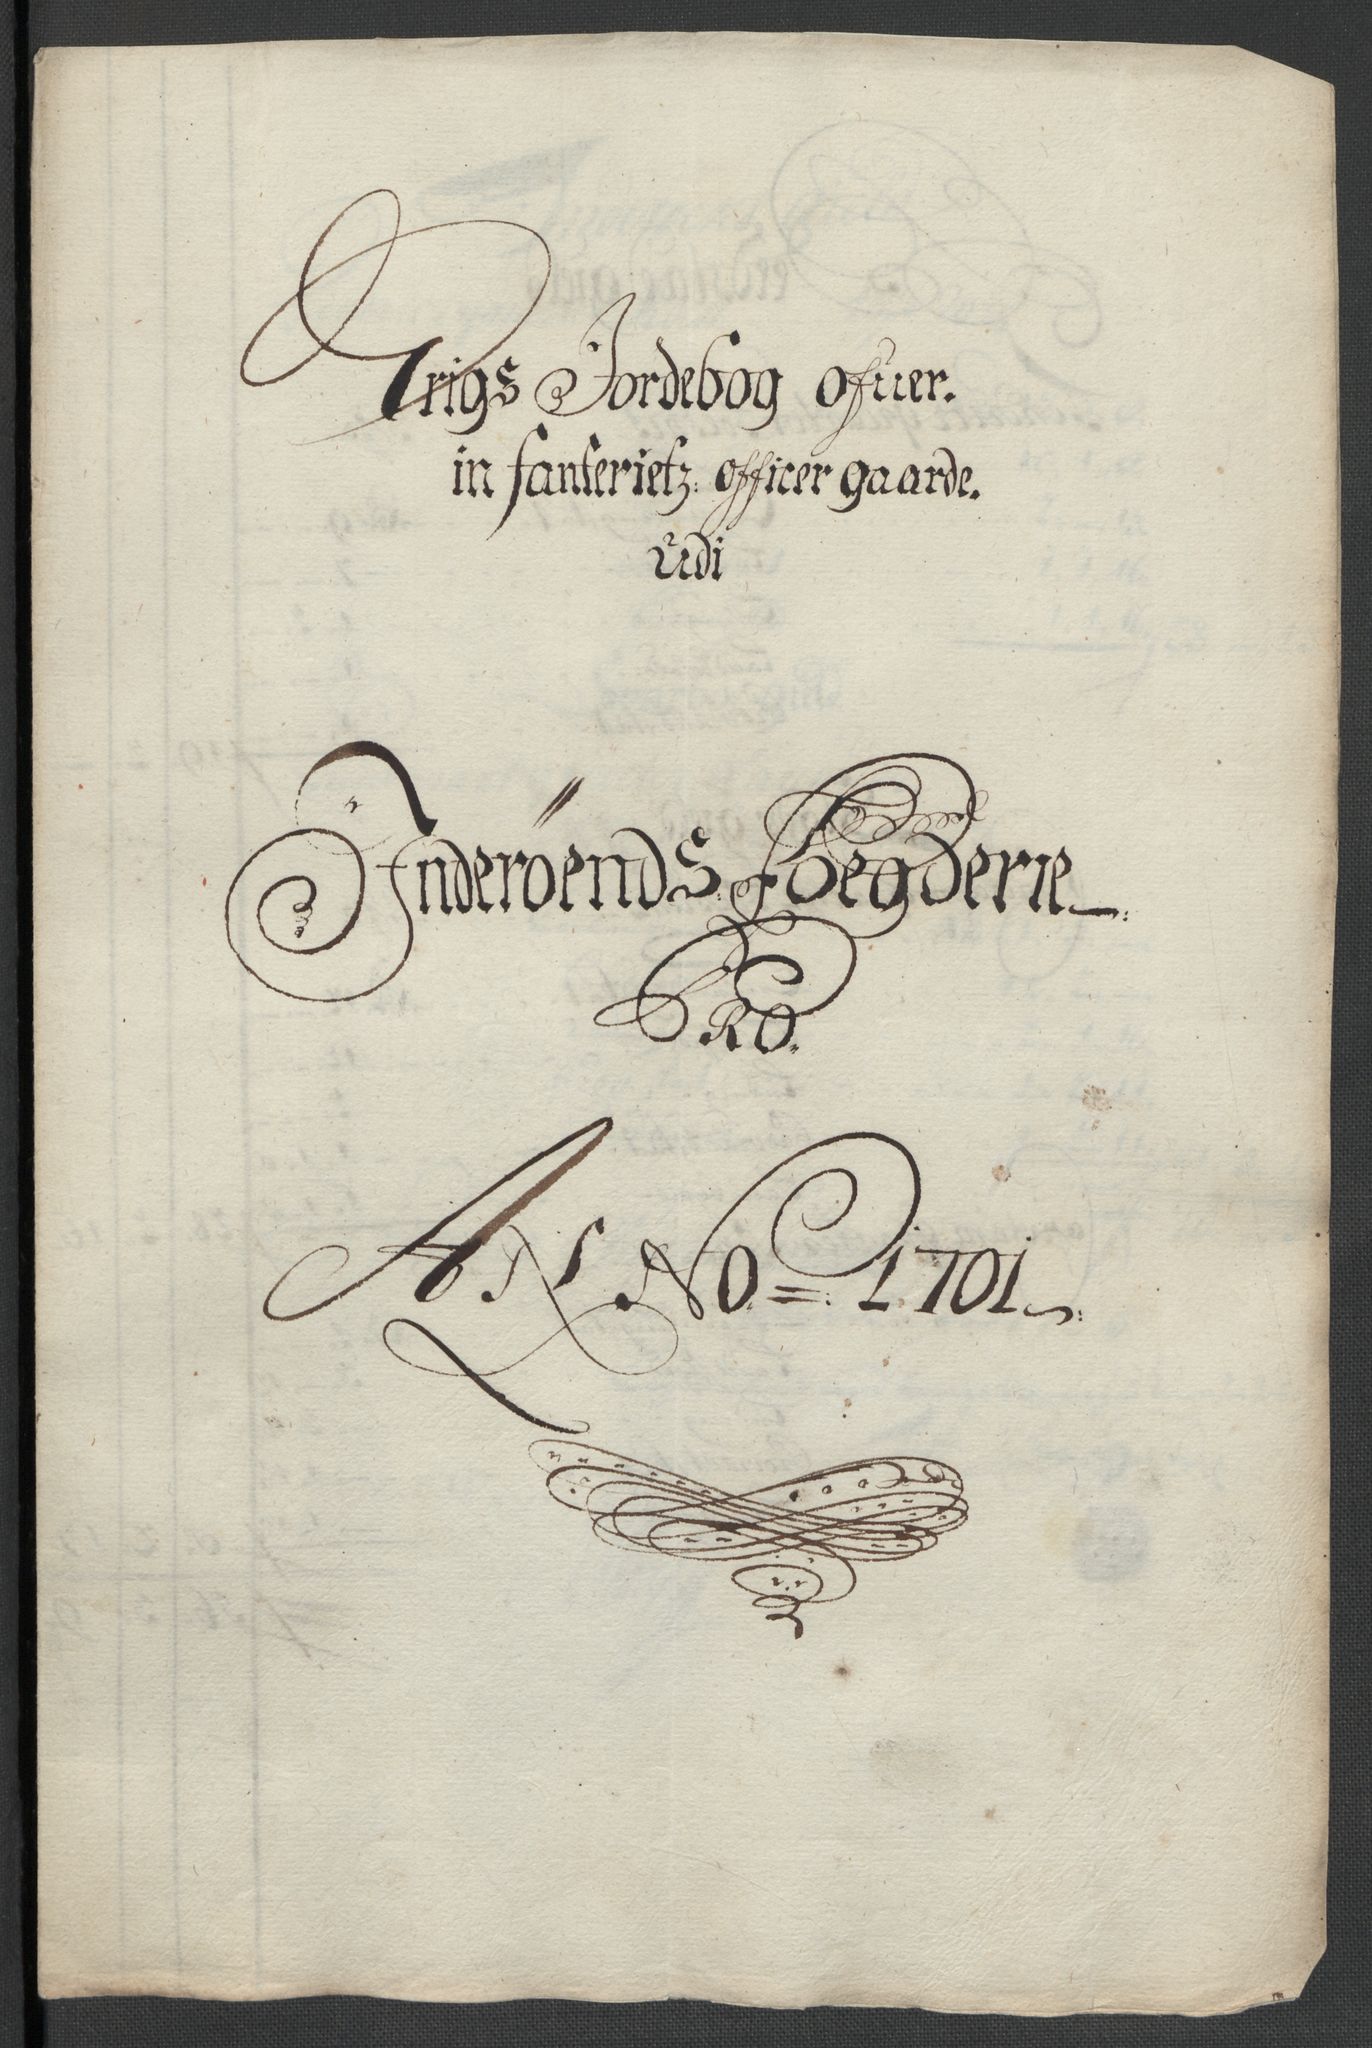 Krigs Jordebog ofuer.
in fanterietz officer gaarde.
udi
Inderöends fogderie
PRO.
ANNO = 1701